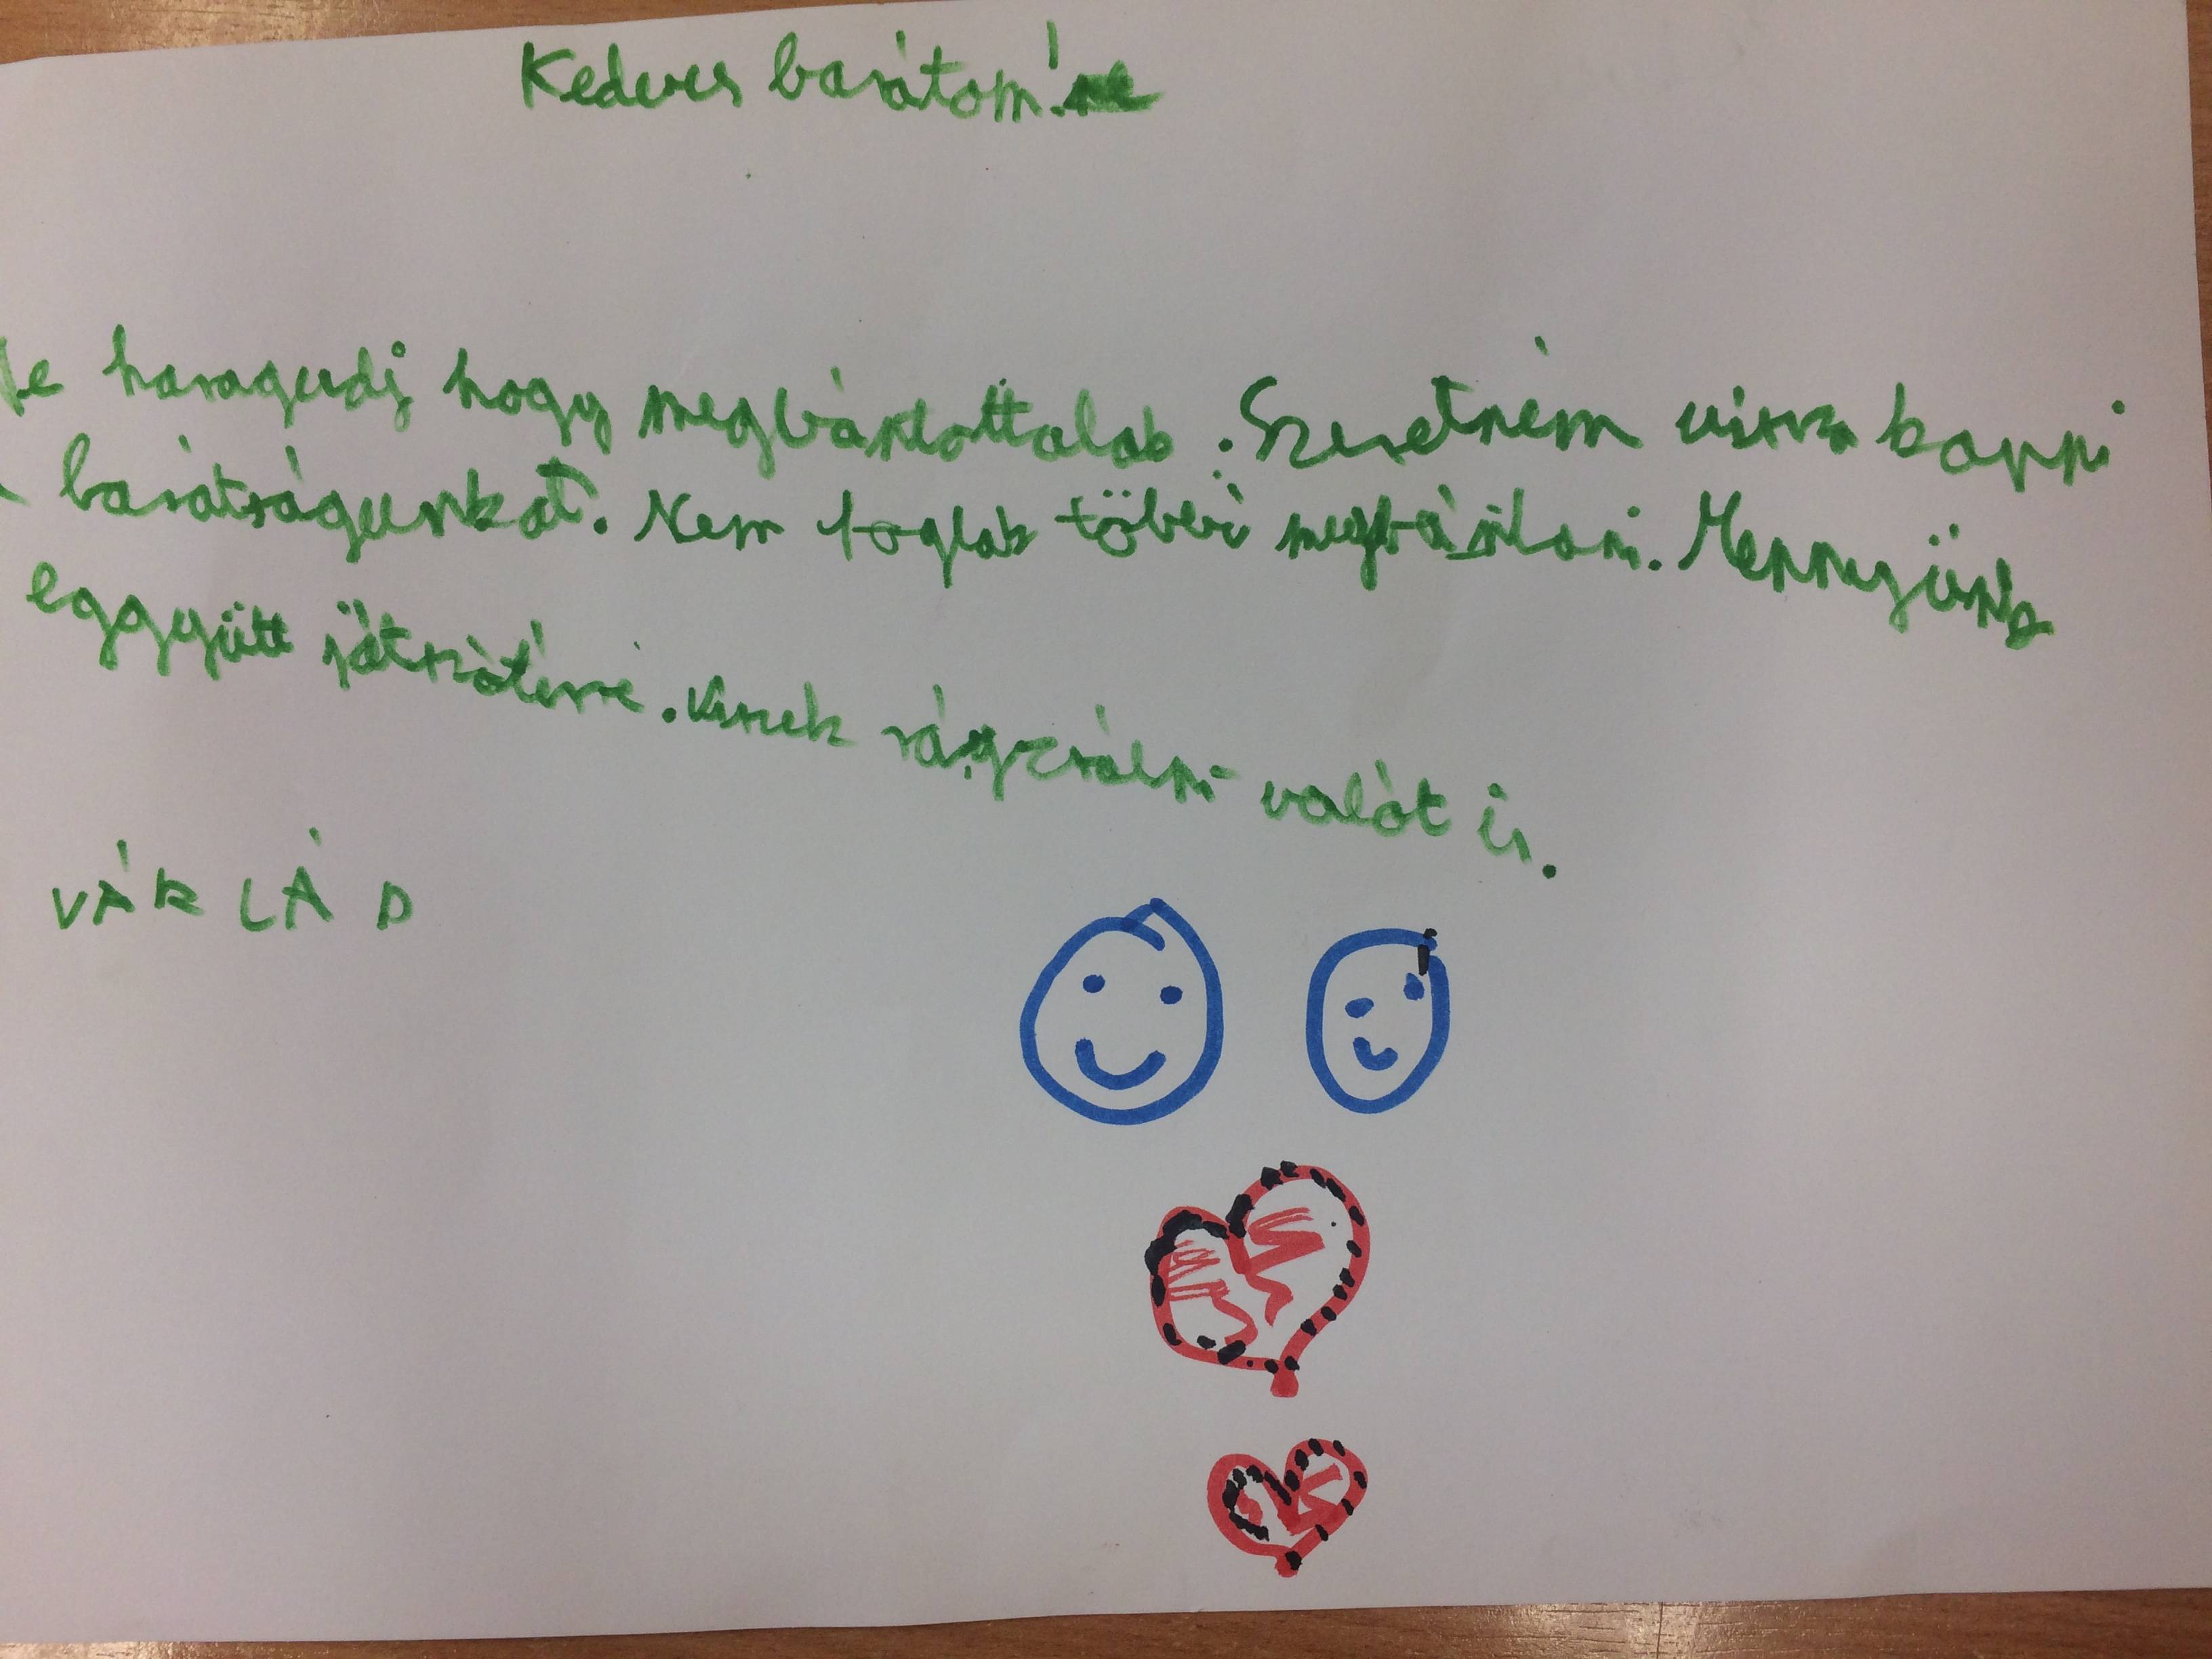 Kedves barátom!
Ne haragudj hogy megbántottalak. Szeretném vissza kappi
a barátságunkat. Nem foglak többé megbántani. Mennyünk
eggyütt játszótérre. Viszek rágcsálni valót is.
VÁR LÁ D